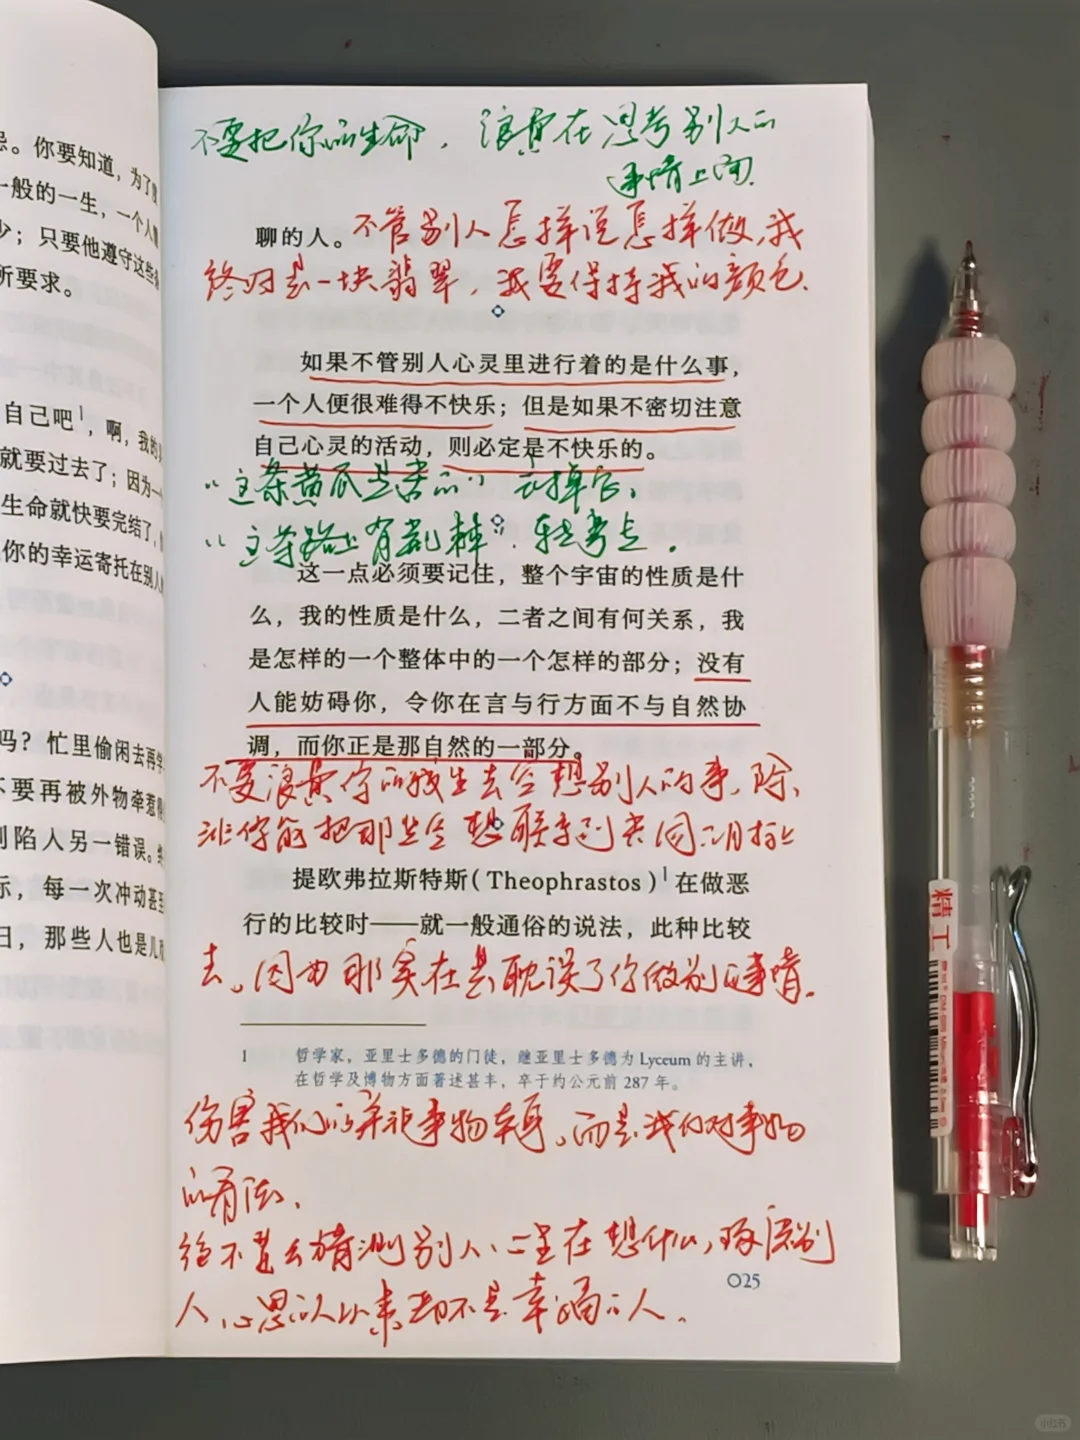 忌。你要知道，为了
一般的一生，一个人
少；只要他遵守这些
所要求。
自己吧¹，啊，我的
就要过去了；因为一
生命就快要完结了，
你的幸运寄托在别人
吗？忙里偷闲去再学
不要再被外物牵惹
别陷入另一错误。
示，每一次冲动甚至
日，那些人也是儿
不要把你的生命，浪费在思考别人的
事情上面.
聊的人。不管别人怎样说怎样做，我
终归是一块翡翠，我要保持我的颜色.
如果不管别人心灵里进行着的是什么事，
一个人便很难得不快乐；但是如果不密切注意
自己心灵的活动，则必定是不快乐的。
“这条黄瓜是苦的”扔掉它，
“这条路上有荆棘”.
这一点必须要记住，整个宇宙的性质是什
么，我的性质是什么，二者之间有何关系，我
是怎样的一个整体中的一个怎样的部分；没有
人能妨碍你，令你在言与行方面不与自然协
调，而你正是那自然的一部分。
不要浪费你的残生去空想别人的事，除
非你能把那些空想联系到共同
提欧弗拉斯特斯(Theophrastos)¹在做恶
行的比较时——就一般通俗的说法，此种比较
去。因为那实在是耽误了你做别的事情.
1 哲学家，亚里士多德的门徒，继亚里士多德为Lyceum的主讲，
在哲学及博物方面著述甚丰，卒于约公元前287年。
伤害我们的并非事物本身，而是我们对事物
的看法.
绝不要去猜测别人心里在想什么，琢磨别
人心思的人从来都不是幸福的人.
025
精工
小红书